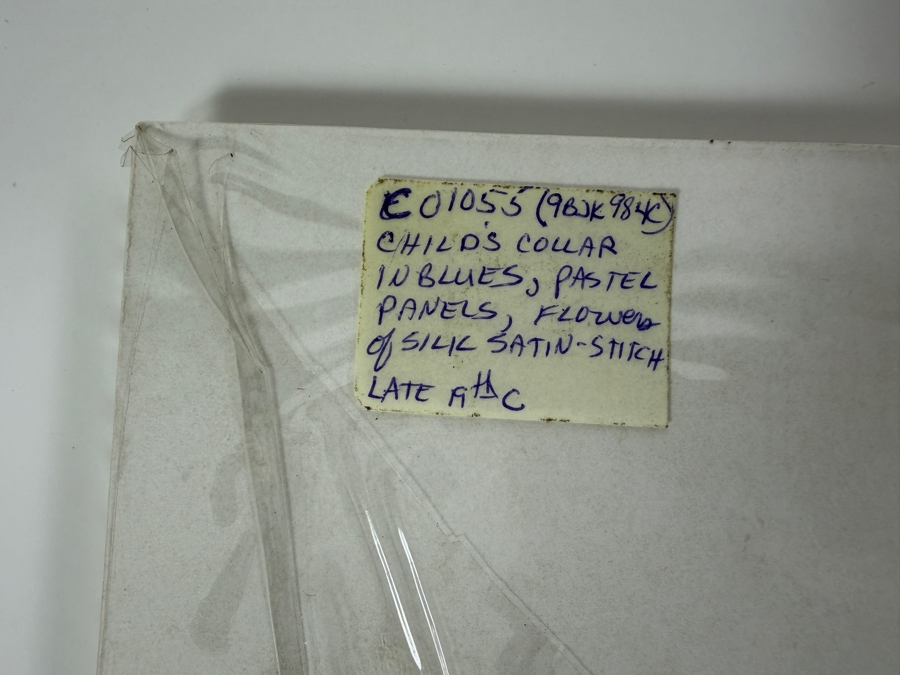 C01055 (9BJK984C)
CHILD'S COLLAR
IN BLUES, PASTEL
PANELS, FLOWERS
of SILK SATIN-STITCH
LATE 19th C